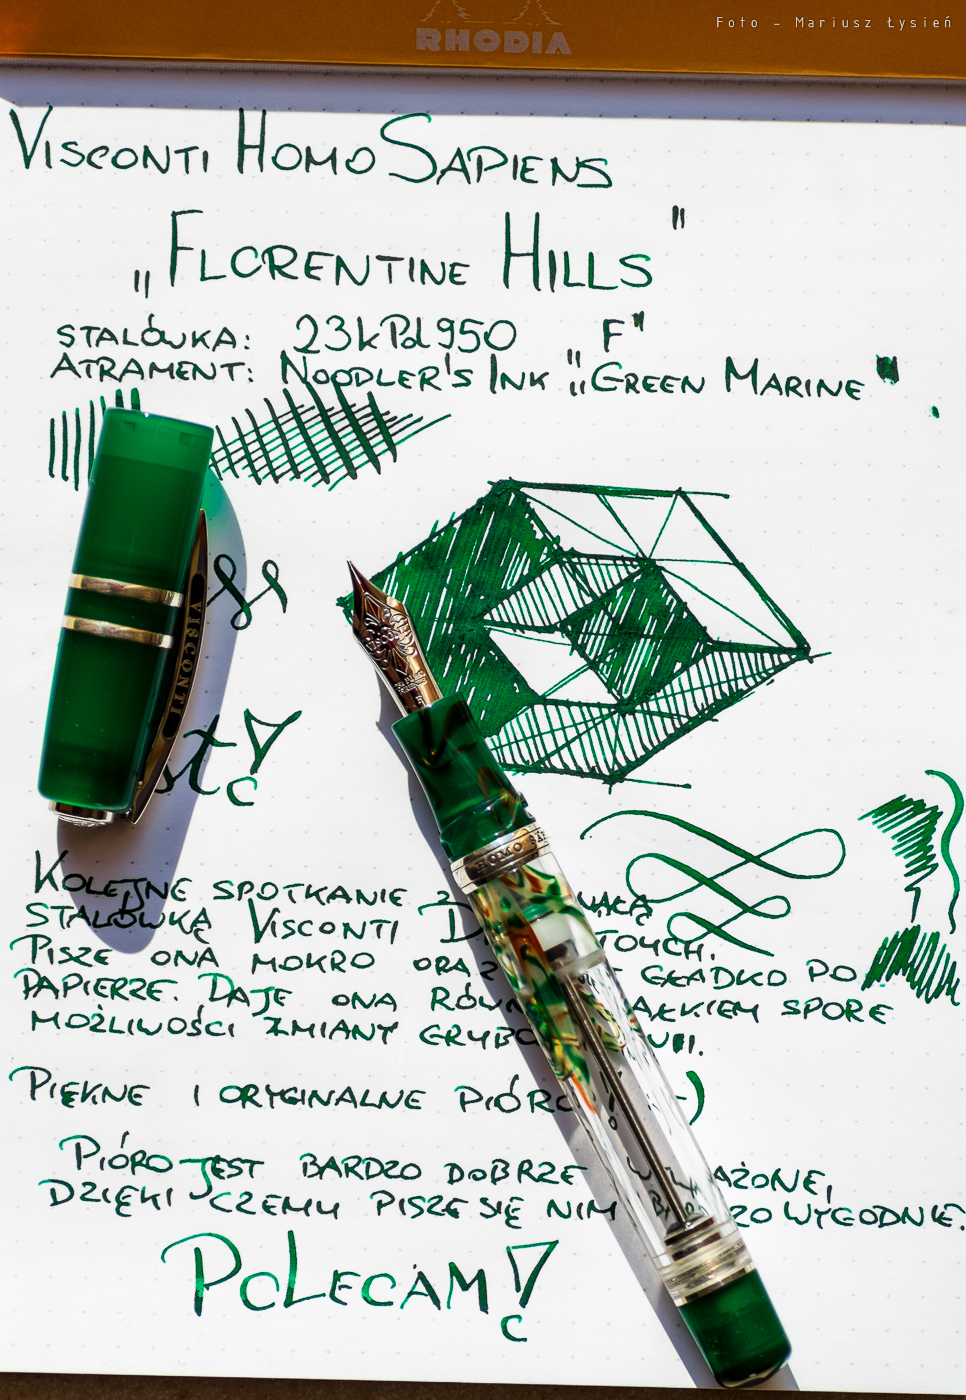 Foto - Mariusz Łysień
RHODIA
VISCONTI HOMO SAPIENS
„FLORENTINE HILLS"
STALÓWKA: 23kPd950 F"
ATRAMENT: NOODLER'S INK „GREEN MARINE"
VISCONTI
HOMO SAP
KOLEJNE SPOTKANIE Z
STALÓWKĄ VISCONTI
PISZE ONA MOKRO ORAZ GŁADKO PO
PAPIERZE. DAJE ONA SPORE
MOŻLIWOŚCI ZMIANY
PIĘKNE I ORYGINALNE PIÓRO! :-)
PIÓRO JEST BARDZO DOBRZE WYWAŻONE,
DZIĘKI CZEMU PISZE SIĘ NIM BARDZO WYGODNIE.
POLECAM!